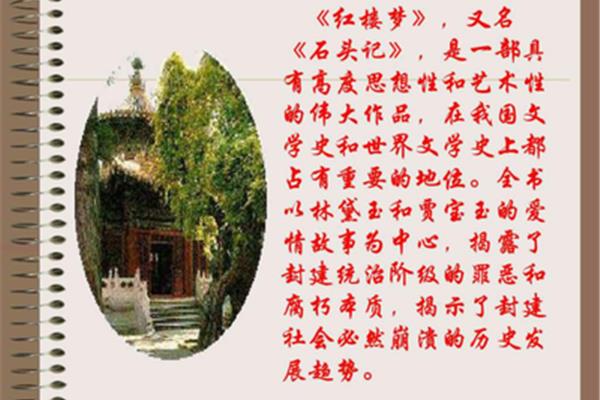 《红楼梦》，又名
《石头记》，是一部具
有高度思想性和艺术性
的伟大作品，在我国文
学史和世界文学史上都
占有重要的地位。全书
以林黛玉和贾宝玉的爱
情故事为中心，揭露了
封建统治阶级的罪恶和
腐朽本质，揭示了封建
社会必然崩溃的历史发
展趋势。